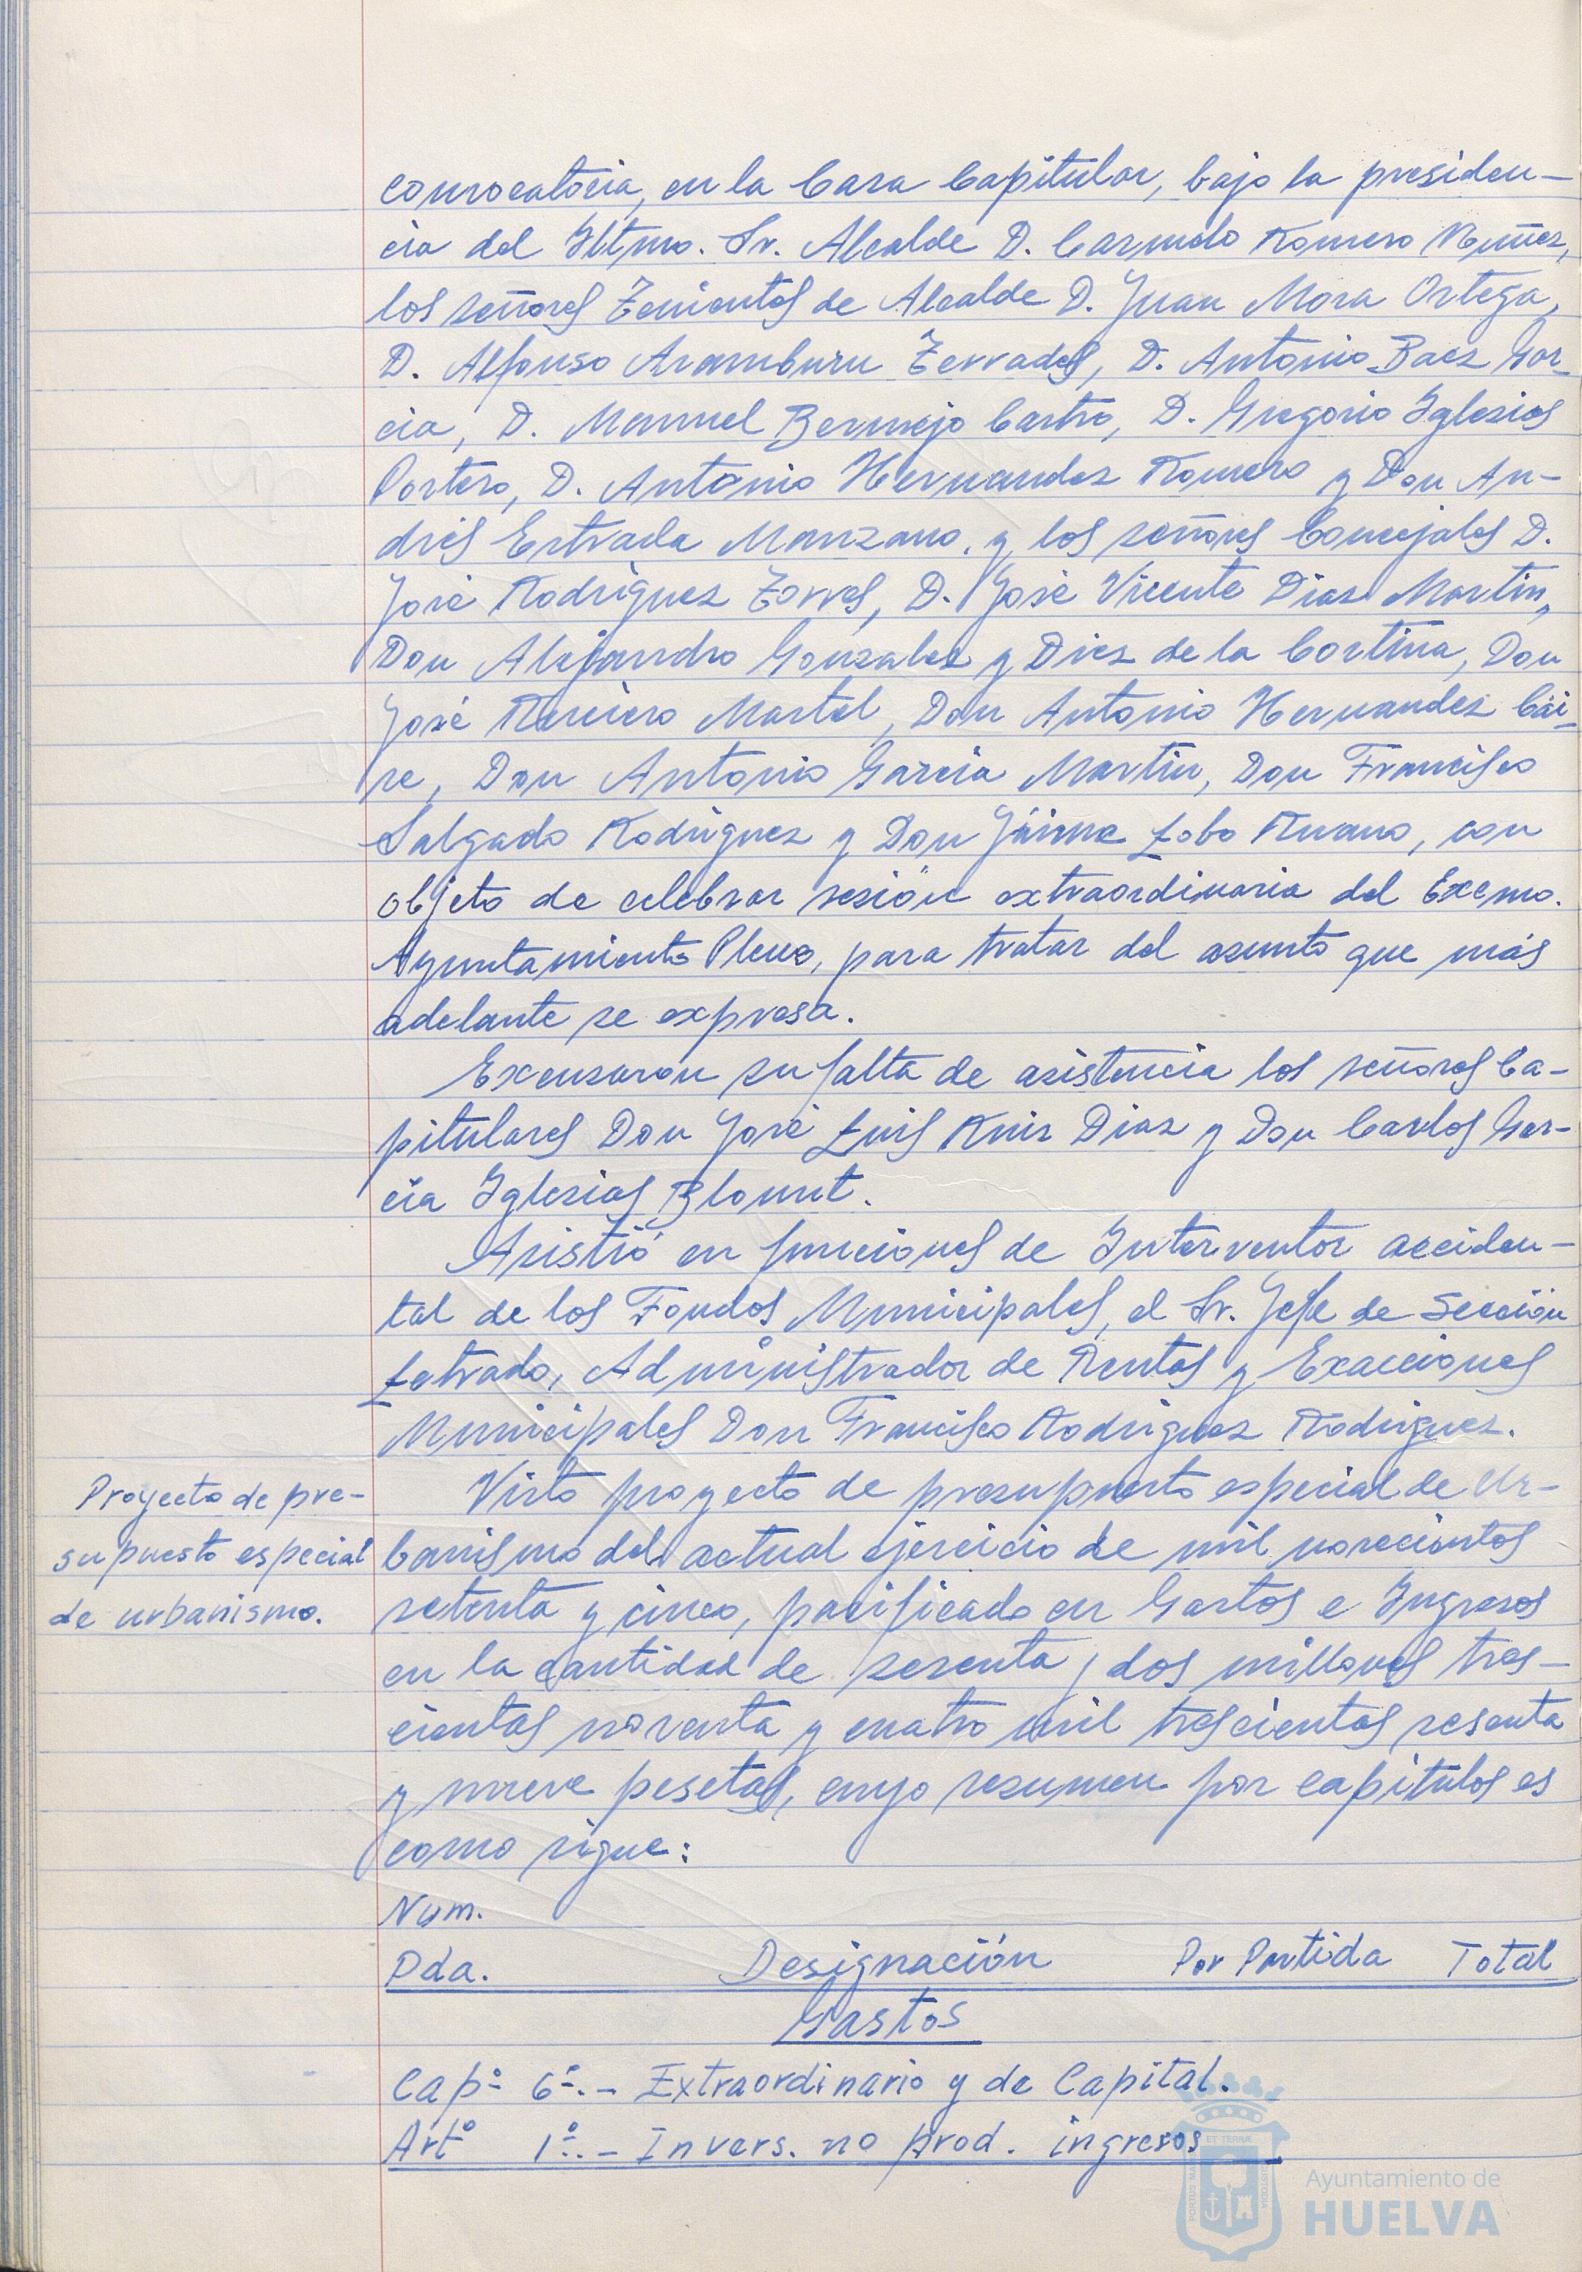 convocatoria, en la Casa Capitular, bajo la presiden-
cia del Iltmo. Sr. Alcalde D. Carmelo Romero Nuñez,
los señores Tenientes de Alcalde D. Juan Mora Ortega,
D. Alfonso Aramburu Terrades, D. Antonio Baez Gar-
cia, D. Manuel Bermejo Castro, D. Gregorio Iglesias
Portero, D. Antonio Hernandez Romero y Don An-
drés Estrada Manzano, y los señores Concejales D.
José Rodriguez Torres, D. José Vicente Diaz Martin,
Don Alejandro Gonzalez y Diez de la Cortina, Don
José Martel, Don Antonio Hernandez Cái-
re, Don Antonio Garcia Martin, Don Francisco
Salgado Rodriguez y Don Jáime Lobo Ruano, con
objeto de celebrar sesión extraordinaria del Excmo.
Ayuntamiento Pleno, para tratar del asunto que más
adelante se expresa.
Excusaron su falta de asistencia los señores Ca-
pitulares Don José Luis Ruiz Diaz y Don Carlos Gar-
cia Iglesias Blount.
Asistió en funciones de Interventor acciden-
tal de los Fondos Municipales, el Sr. Jefe de Sección
Letrado, Administrador de Rentas y Exacciones
Municipales Don Francisco Rodriguez Rodriguez.
Proyecto de pre-
supuesto especial
de urbanismo.
Visto proyecto de presupuesto especial de Ur-
banismo del actual ejercicio de mil novecientos
setenta y cinco, pacificado en Gastos e Ingresos
en la cantidad de sesenta y dos millones tres-
cientas noventa y cuatro mil trescientas sesenta
y nueve pesetas, cuyo resumen por capitulos es
como sigue:
Num.
Pda. Designación Por Partida Total
Gastos
Capº 6º.- Extraordinario y de Capital.
Artº 1º.- Invers. no prod. ingresos
Ayuntamiento de
HUELVA